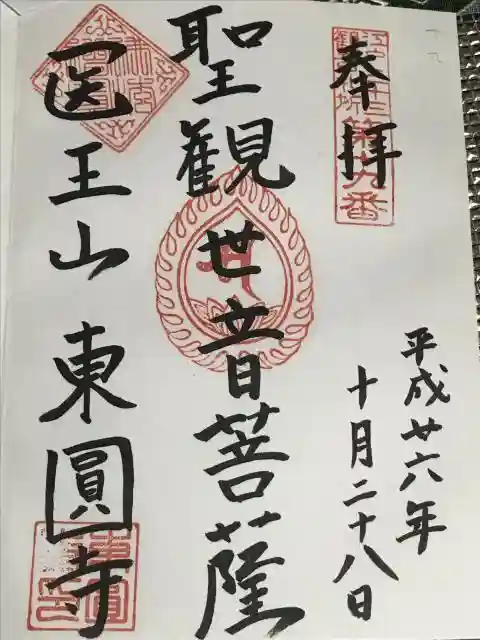 奉拝
平成廿六年
十月二十八日
聖観世音菩薩
医王山 東圓寺